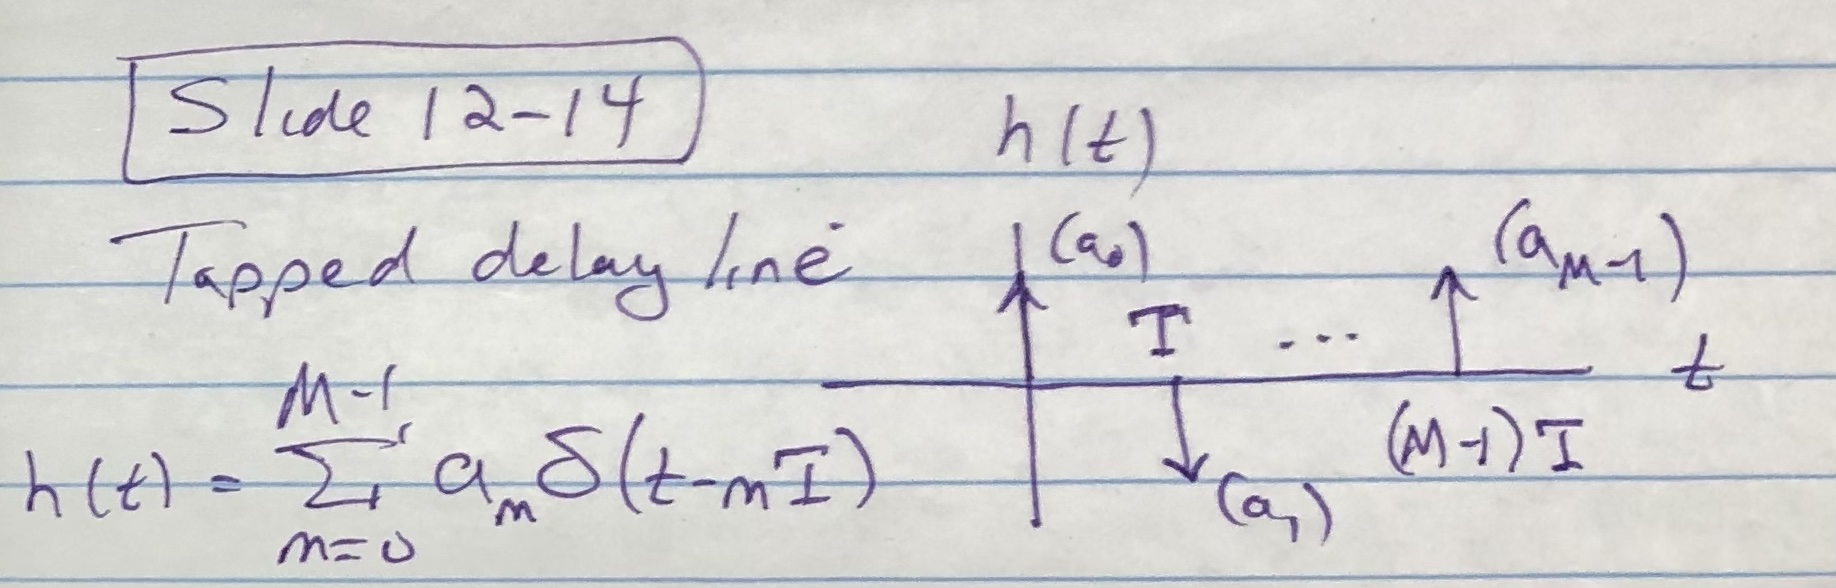 Slide 12-14
Tapped delay line
h(t) = M-1 Σ m=0 a_m δ(t-mT)
h(t)
(a₀)
T ... (a_M-1)
t
(M-1)T
(a₁)